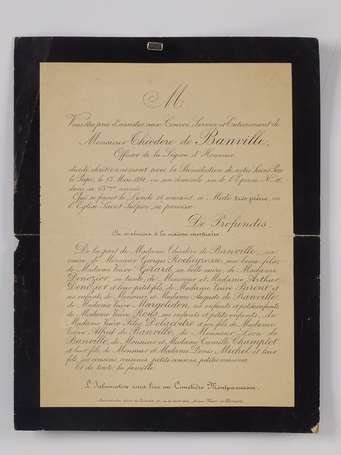 M
Vous êtes prié d'assister aux Convoi, Service et Enterrement de
Monsieur Théodore de Banville,
Officier de la Légion d'Honneur
décédé chrétiennement avec la Bénédiction de notre Saint Père
le Pape, le 13 Mars 1891, en son domicile rue de l'Éperon N° 10,
dans sa année
Qui se feront le Lundi 16 courant, à Midi très précis, en
l'Église Saint Sulpice, sa paroisse.
De Profundis
On se réunira à la maison mortuaire.
De la part de Madame Théodore de Banville, sa
veuve, de Monsieur Georges Rochegrosse, son beau-fils,
de Madame Veuve Gérard, sa belle mère, de Madame
sa tante, de Monsieur et Madame Arthur
et leur petit fils, de Madame Veuve et
ses enfants, de Monsieur et Madame Auguste de Banville,
de Madame Veuve ses enfants et petits enfants,
de Madame Veuve ses enfants et petits enfants, de
Madame Veuve et son fils, de Madame
Veuve Alfred de Banville, de Monsieur Léon de
Banville, de Monsieur et Madame Camille
et leur fils, de Monsieur et Madame Denis Michel et leur
fils, ses cousins, cousines, petits cousins, petites cousines
Et de toute la famille.
L'Inhumation aura lieu au Cimetière Montparnasse.